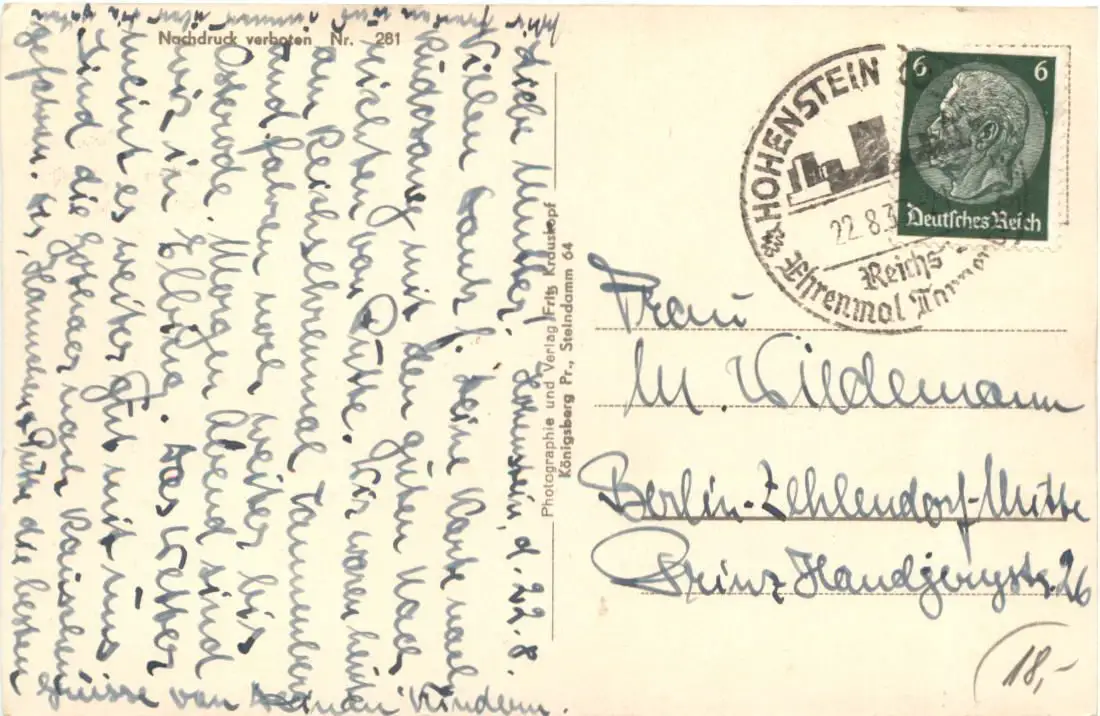 Nachdruck verboten Nr. 281
Hohenstein, d. 22.8.
Liebe Mutter!
Vielen Dank f. Deine Karte nach
mit den guten Nach
richten von Putte. Wir waren heute
am Reichsehrenmal Tannenberg
und fahren noch weiter bis
Osterode. Morgen Abend sind
wir in Elbing. Das Wetter
meint es weiter gut mit uns
Sind die Gothaer nach Rauschen
gefahren. Dir, Hannchen u. Putte die besten
Grüsse von Deinen Kindern.
Photographie und Verlag Fritz Krauskopf
Königsberg Pr., Steindamm 64
HOHENSTEIN
22.8.3
Reichs
Ehrenmal
6 6
Deutsches Reich
Frau
M. Wildemann
Berlin-Zehlendorf-Mitte
Prinz Handjerystr. 26
18,-